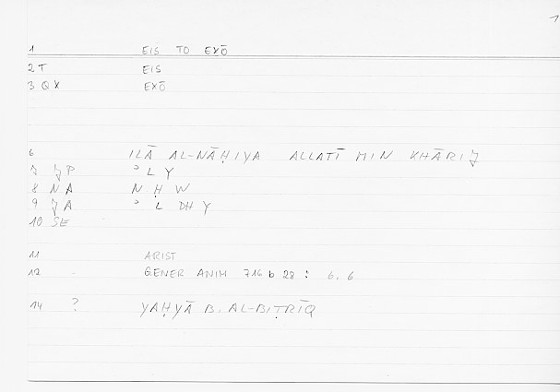 1
1 EIS TO EXŌ
2 T EIS
3 Q X EXŌ
6 ILĀ AL-NĀḤIYA ALLATĪ MIN KHĀRIJ
7 JP ʾ L Y
8 NA N Ḥ W
9 JA ʾ L DH Y
10 SE
11 ARIST
12 GENER ANIM 716 b 28 : 6.6
14 ? YAḤYĀ B. AL-BIṬRĪQ